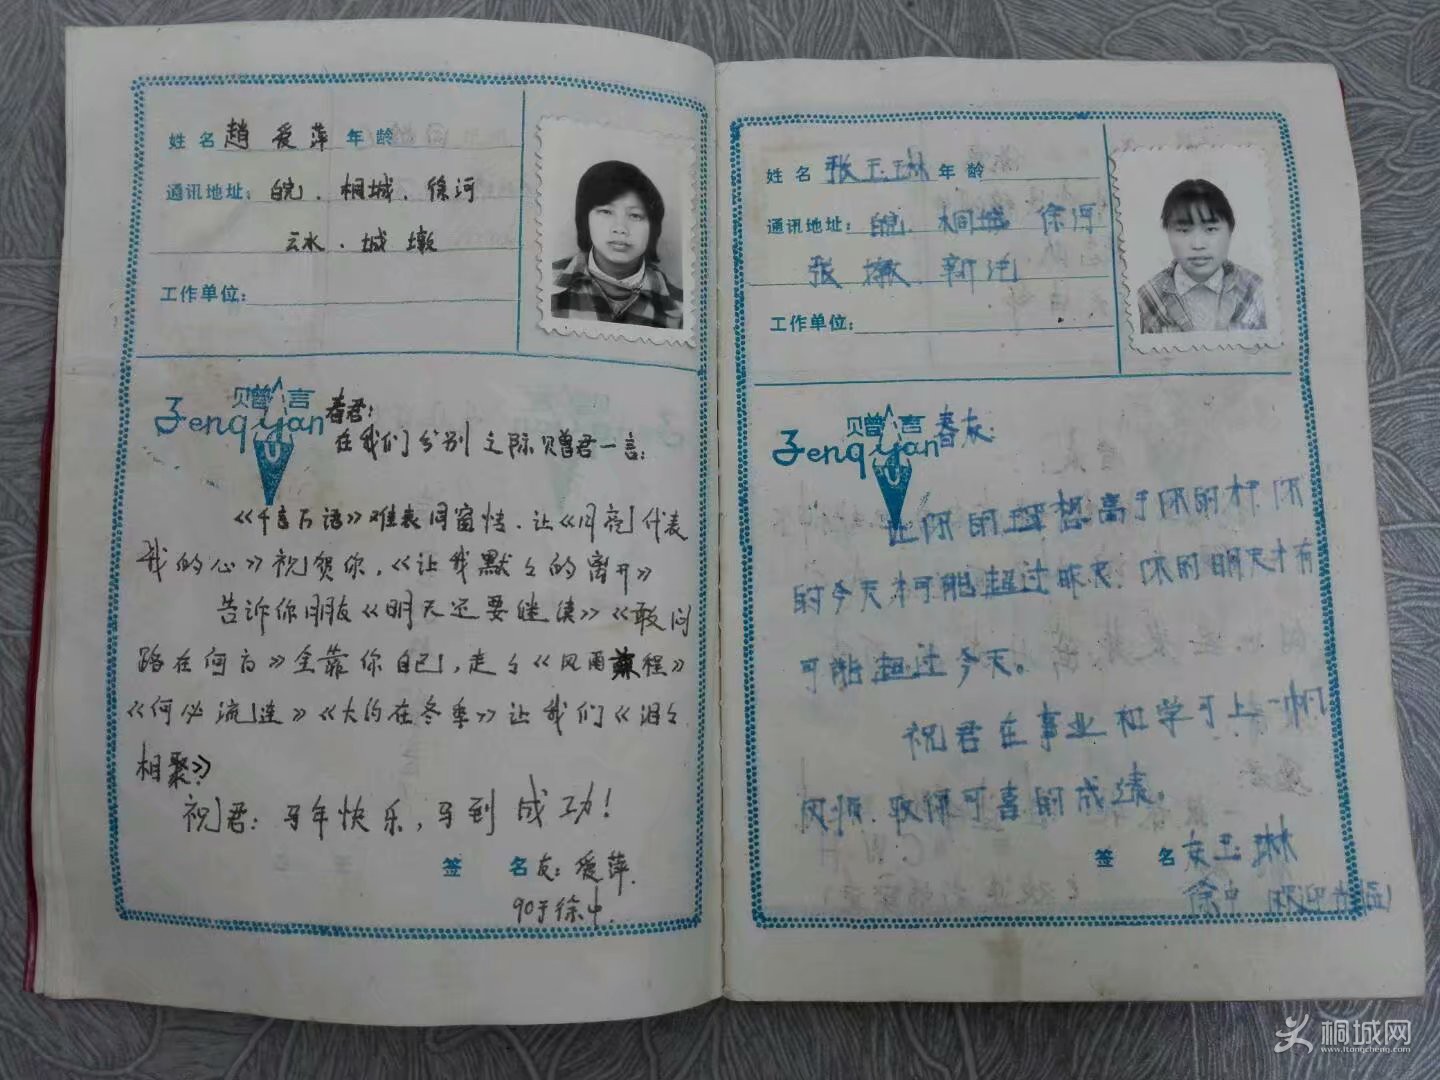 姓名 趙爱萍 年龄
通讯地址: 皖.桐城.徐河
云水.城墩
工作单位:
赠言
Zeng yan
春君:
在我们分别之际赠君一言:
《千言万语》难表同窗情.让《月亮代表
我的心》祝贺你,《让我默々的离开》
告诉你朋友《明天还要继续》《敢问
路在何方》全靠你自己,走々《风雨兼程》
《何必流连》《大约在冬季》让我们《泪々
相聚》
祝君:马年快乐,马到成功!
签名 友:爱萍.
90于徐中.
姓名 张玉琳 年龄
通讯地址: 皖.桐城 徐河
张墩.新
工作单位:
赠言
Zeng yan
春友:
让你的理想高于你的才.你
的今天才可能超过昨天.你的明天才有
可能超过今天。
祝君在事业和学习上一帆
风顺.取得可喜的成绩。
签名 友玉琳
徐中
桐城网
www.itongcheng.com